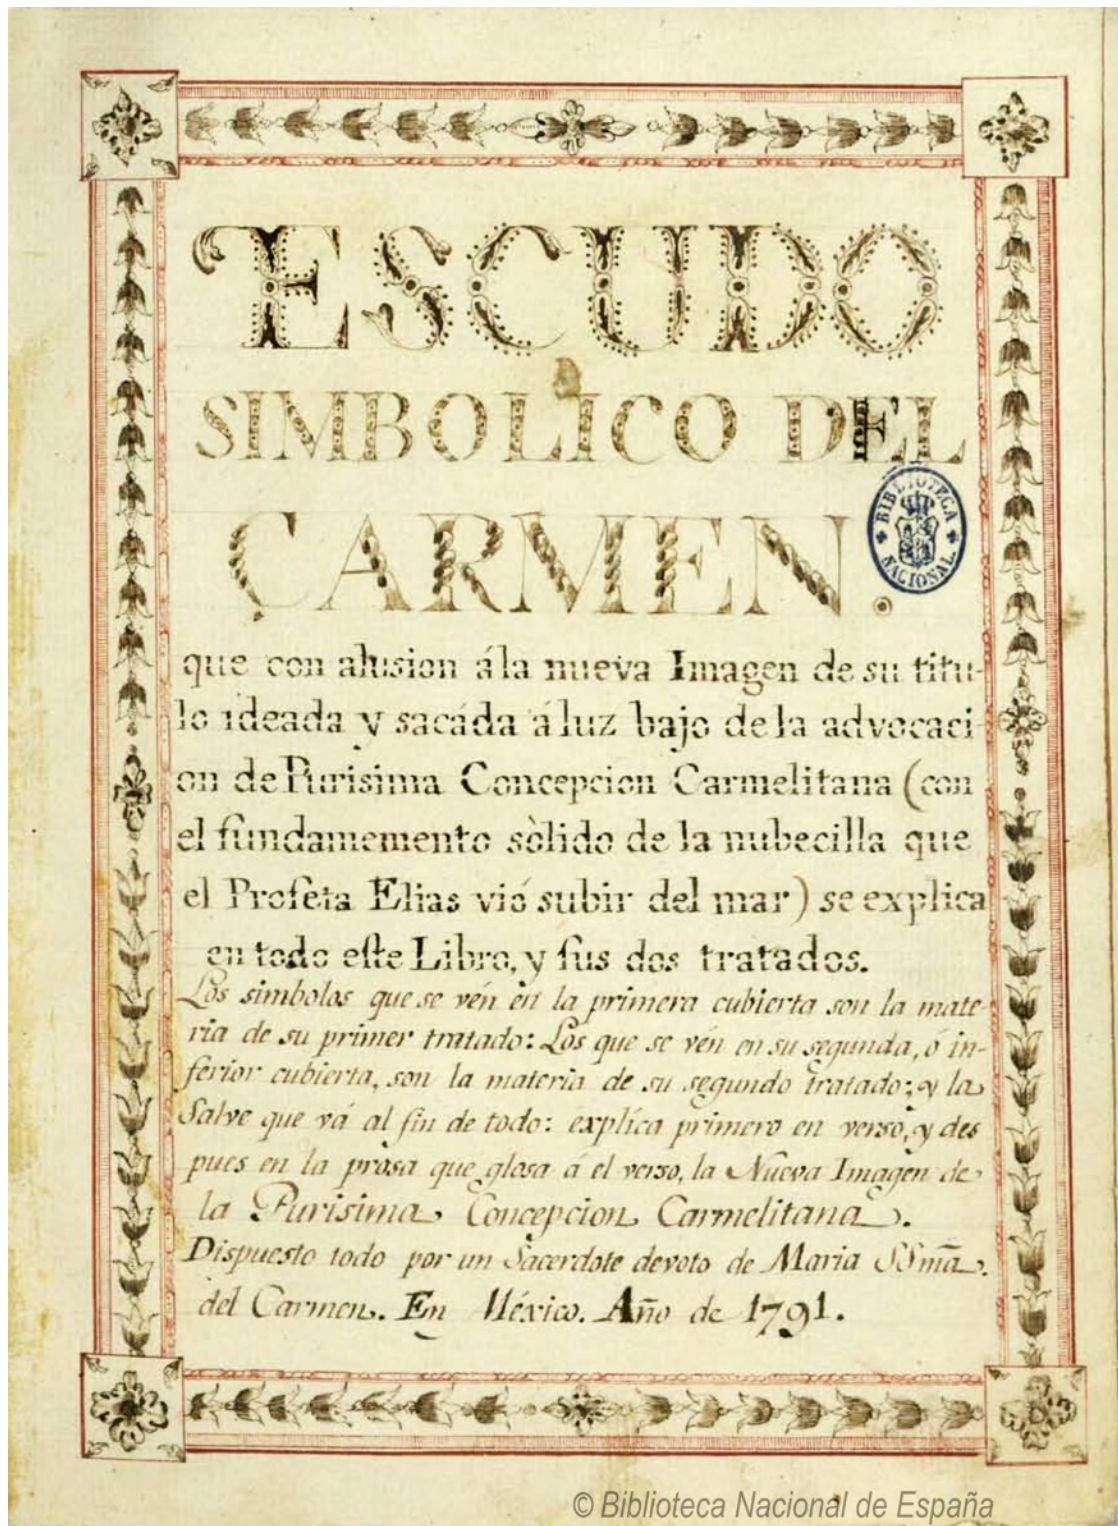 ESCUDO
SIMBOLICO DEL
CARMEN.
BIBLIOTECA NACIONAL
que con alusion ála nueva Imagen de su titu-
lo ideada y sacáda á luz bajo de la advocaci
on de Purisima Concepcion Carmelitana (con
el fundamemento sòlido de la nubecilla que
el Profeta Elias vió subir del mar) se explica
en todo eſte Libro, y ſus dos tratados.
Los simbolos que se vén en la primera cubierta son la mate-
ria de su primer tratado: Los que se vén en su segunda, ó in-
ferior cubierta, son la materia de su segundo tratado; y la
Salve que vá al fin de todo: explíca primero en verso, y des
pues en la prosa que glosa á el verso, la Nueva Imagen de
la Purisima Concepcion Carmelitana.
Dispuesto todo por un Sacerdote devoto de Maria SSmā.
del Carmen. En México. Año de 1791.
© Biblioteca Nacional de España